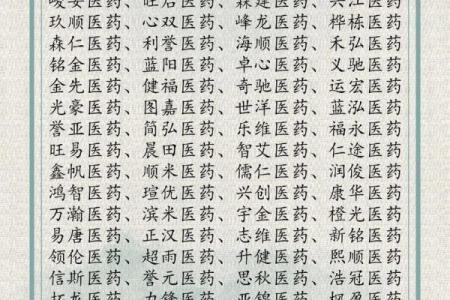 玖顺医药、心双医药、峰龙医药、桦栋医药、
森仁医药、利誉医药、海顺医药、禾弘医药、
铭金医药、蓝阳医药、卓心医药、义驰医药、
金先医药、健福医药、奇驰医药、运宏医药、
光豪医药、图嘉医药、世洋医药、蓝泓医药、
誉亚医药、简弘医药、乐维医药、福永医药、
旺易医药、晨田医药、智艾医药、仁途医药、
鑫帆医药、顺米医药、儒仁医药、润俊医药、
鸿智医药、瑄优医药、兴创医药、康华医药、
万瀚医药、滨米医药、宇金医药、橙光医药、
易唐医药、正汉医药、志维医药、新铭医药、
领伦医药、超雨医药、升健医药、熙顺医药、
信斯医药、誉元医药、思秋医药、浩冠医药、